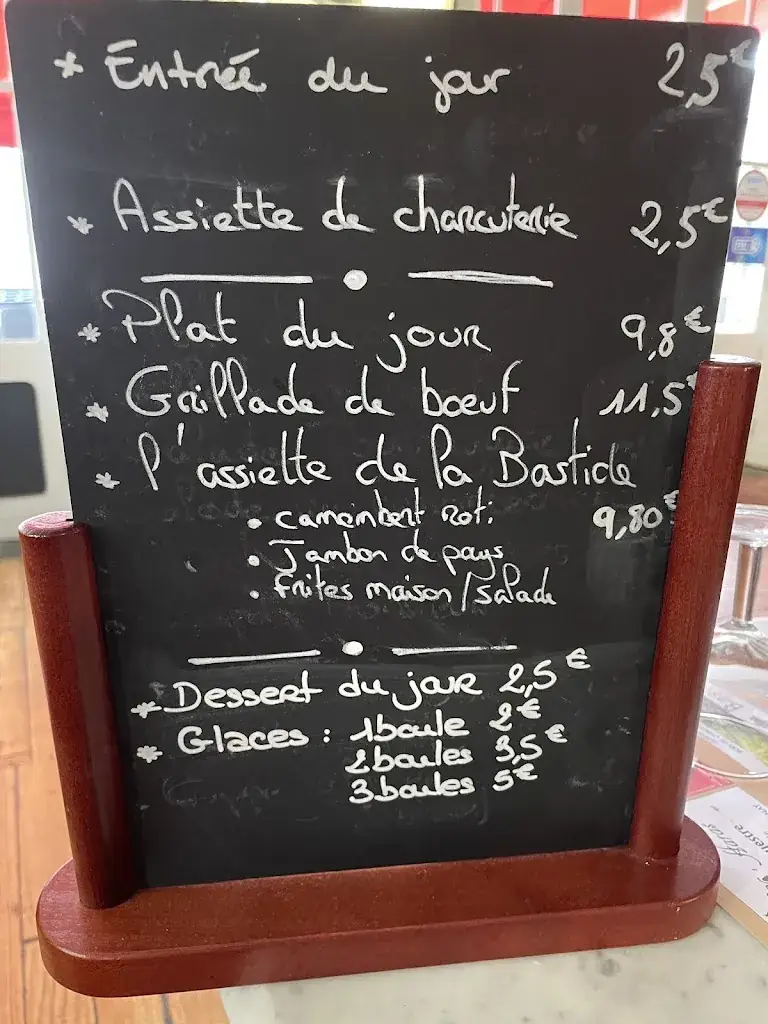 * Entrée du jour 2,5€
* Assiette de charcuterie 2,5€
* Plat du jour 9,8€
* Grillade de bœuf 11,5€
* l'assiette de la Bastide
• camembert roti 9,80€
• Jambon de pays
• frites maison/salade
* Dessert du jour 2,5€
* Glaces : 1 boule 2€
2 boules 3,5€
3 boules 5€